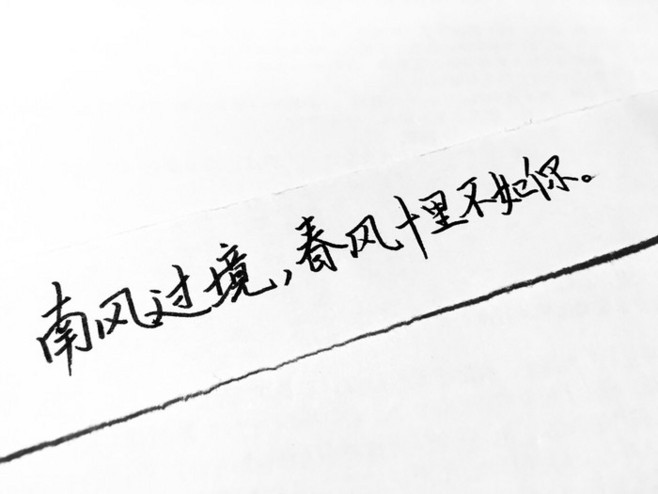 南风过境,春风十里不如你。